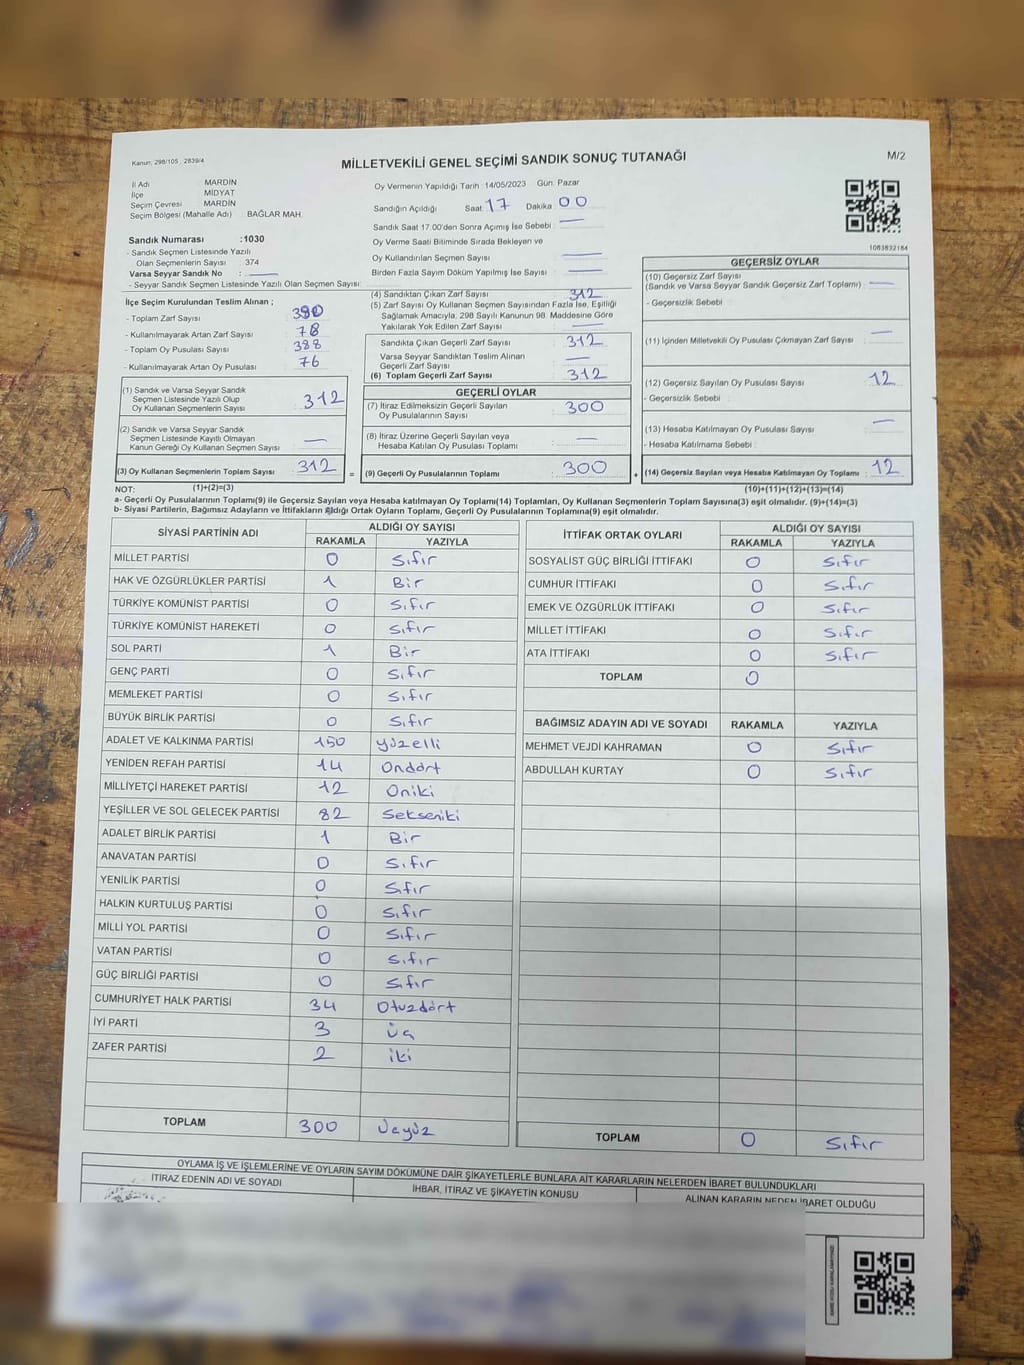 Kanun: 298/105 , 2839/4
MİLLETVEKİLİ GENEL SEÇİMİ SANDIK SONUÇ TUTANAĞI
M/2
İl Adı MARDİN
İlçe MİDYAT
Seçim Çevresi MARDİN
Seçim Bölgesi (Mahalle Adı) BAĞLAR MAH.
Oy Vermenin Yapıldığı Tarih 14/05/2023 Gün: Pazar
Sandığın Açıldığı Saat 17 Dakika 00
Sandık Saat 17.00'den Sonra Açımış İse Sebebi : —
Oy Verme Saati Bitiminde Sırada Bekleyen ve
Oy Kullandırılan Seçmen Sayısı —
Birden Fazla Sayım Döküm Yapılmış İse Sayısı —
1083832184
Sandık Numarası :1030
- Sandık Seçmen Listesinde Yazılı
Olan Seçmenlerin Sayısı 374
Varsa Seyyar Sandık No : —
- Seyyar Sandık Seçmen Listesinde Yazılı Olan Seçmen Sayısı:
İlçe Seçim Kurulundan Teslim Alınan ;
- Toplam Zarf Sayısı 390
- Kullanılmayarak Artan Zarf Sayısı 78
- Toplam Oy Pusulası Sayısı 388
- Kullanılmayarak Artan Oy Pusulası 76
(1) Sandık ve Varsa Seyyar Sandık
Seçmen Listesinde Yazılı Olup
Oy Kullanan Seçmenlerin Sayısı 312
(2) Sandık ve Varsa Seyyar Sandık
Seçmen Listesinde Kayıtlı Olmayan
Kanun Gereği Oy Kullanan Seçmen Sayısı —
(3) Oy Kullanan Seçmenlerin Toplam Sayısı 312 =
(1)+(2)=(3)
(4) Sandıktan Çıkan Zarf Sayısı 312
(5) Zarf Sayısı Oy Kullanan Seçmen Sayısından Fazla İse, Eşitliği
Sağlamak Amacıyla, 298 Sayılı Kanunun 98. Maddesine Göre
Yakılarak Yok Edilen Zarf Sayısı —
Sandıkta Çıkan Geçerli Zarf Sayısı 312
Varsa Seyyar Sandıktan Teslim Alınan
Geçerli Zarf Sayısı —
(6) Toplam Geçerli Zarf Sayısı 312
GEÇERLİ OYLAR
(7) İtiraz Edilmeksizin Geçerli Sayılan
Oy Pusulalarının Sayısı 300
(8) İtiraz Üzerine Geçerli Sayılan veya
Hesaba Katılan Oy Pusulası Toplamı —
(9) Geçerli Oy Pusulalarının Toplamı 300 +
GEÇERSİZ OYLAR
(10) Geçersiz Zarf Sayısı
(Sandık ve Varsa Seyyar Sandık Geçersiz Zarf Toplamı) —
- Geçersizlik Sebebi :
(11) İçinden Milletvekili Oy Pusulası Çıkmayan Zarf Sayısı —
(12) Geçersiz Sayılan Oy Pusulası Sayısı 12
- Geçersizlik Sebebi :
(13) Hesaba Katılmayan Oy Pusulası Sayısı —
- Hesaba Katılmama Sebebi :
(14) Geçersiz Sayılan veya Hesaba Katılmayan Oy Toplamı 12
(10)+(11)+(12)+(13)=(14)
NOT:
a- Geçerli Oy Pusulalarının Toplamı(9) ile Geçersiz Sayılan veya Hesaba katılmayan Oy Toplamı(14) Toplamları, Oy Kullanan Seçmenlerin Toplam Sayısına(3) eşit olmalıdır. (9)+(14)=(3)
b- Siyasi Partilerin, Bağımsız Adayların ve İttifakların Aldığı Ortak Oyların Toplamı, Geçerli Oy Pusulalarının Toplamına(9) eşit olmalıdır.
SİYASİ PARTİNİN ADI ALDIĞI OY SAYISI
RAKAMLA YAZIYLA
MİLLET PARTİSİ 0 Sıfır
HAK VE ÖZGÜRLÜKLER PARTİSİ 1 Bir
TÜRKİYE KOMÜNİST PARTİSİ 0 Sıfır
TÜRKİYE KOMÜNİST HAREKETİ 0 Sıfır
SOL PARTİ 1 Bir
GENÇ PARTİ 0 Sıfır
MEMLEKET PARTİSİ 0 Sıfır
BÜYÜK BİRLİK PARTİSİ 0 Sıfır
ADALET VE KALKINMA PARTİSİ 150 yüzelli
YENİDEN REFAH PARTİSİ 14 Ondört
MİLLİYETÇİ HAREKET PARTİSİ 12 Oniki
YEŞİLLER VE SOL GELECEK PARTİSİ 82 Sekseniki
ADALET BİRLİK PARTİSİ 1 Bir
ANAVATAN PARTİSİ 0 Sıfır
YENİLİK PARTİSİ 0 Sıfır
HALKIN KURTULUŞ PARTİSİ 0 Sıfır
MİLLİ YOL PARTİSİ 0 Sıfır
VATAN PARTİSİ 0 Sıfır
GÜÇ BİRLİĞİ PARTİSİ 0 Sıfır
CUMHURİYET HALK PARTİSİ 34 Otuzdört
İYİ PARTİ 3 Üç
ZAFER PARTİSİ 2 İki
TOPLAM 300 Üçyüz
İTTİFAK ORTAK OYLARI ALDIĞI OY SAYISI
RAKAMLA YAZIYLA
SOSYALİST GÜÇ BİRLİĞİ İTTİFAKI 0 Sıfır
CUMHUR İTTİFAKI 0 Sıfır
EMEK VE ÖZGÜRLÜK İTTİFAKI 0 Sıfır
MİLLET İTTİFAKI 0 Sıfır
ATA İTTİFAKI 0 Sıfır
TOPLAM 0
BAĞIMSIZ ADAYIN ADI VE SOYADI RAKAMLA YAZIYLA
MEHMET VEJDİ KAHRAMAN 0 Sıfır
ABDULLAH KURTAY 0 Sıfır
TOPLAM 0 Sıfır
OYLAMA İŞ VE İŞLEMLERİNE VE OYLARIN SAYIM DÖKÜMÜNE DAİR ŞİKAYETLERLE BUNLARA AİT KARARLARIN NELERDEN İBARET BULUNDUKLARI
İTİRAZ EDENİN ADI VE SOYADI İHBAR, İTİRAZ VE ŞİKAYETİN KONUSU ALINAN KARARIN NEDEN İBARET OLDUĞU